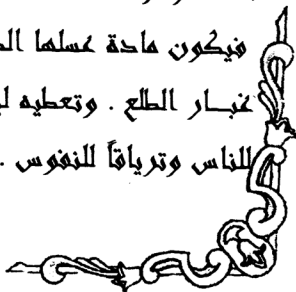 فيكون مادة عسلها
غبار الطلع . وتعطيه
للناس وترياقاً للنفوس .